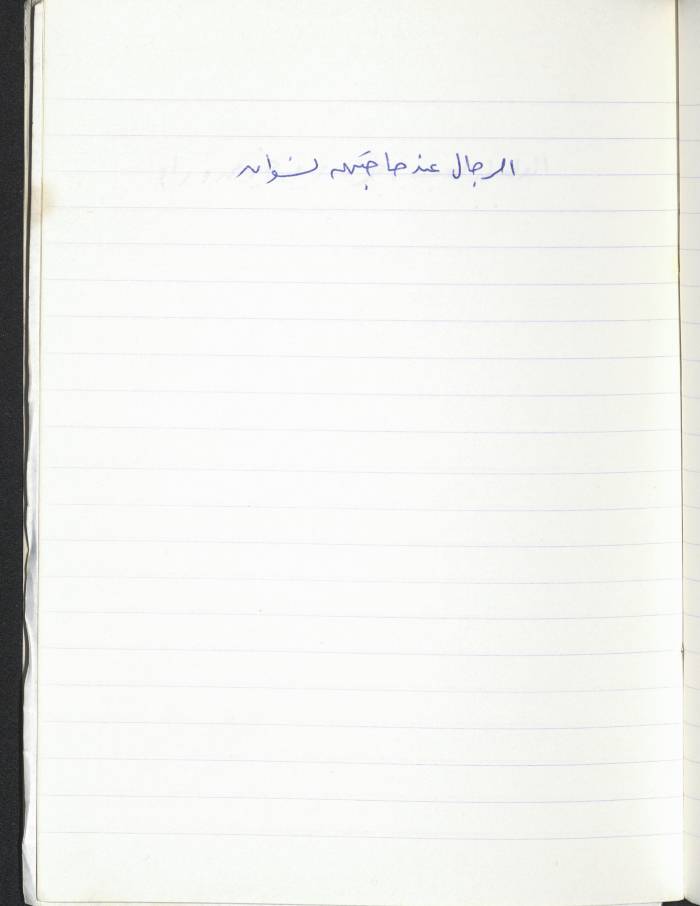 الرجال عند حاجتهم نسوان